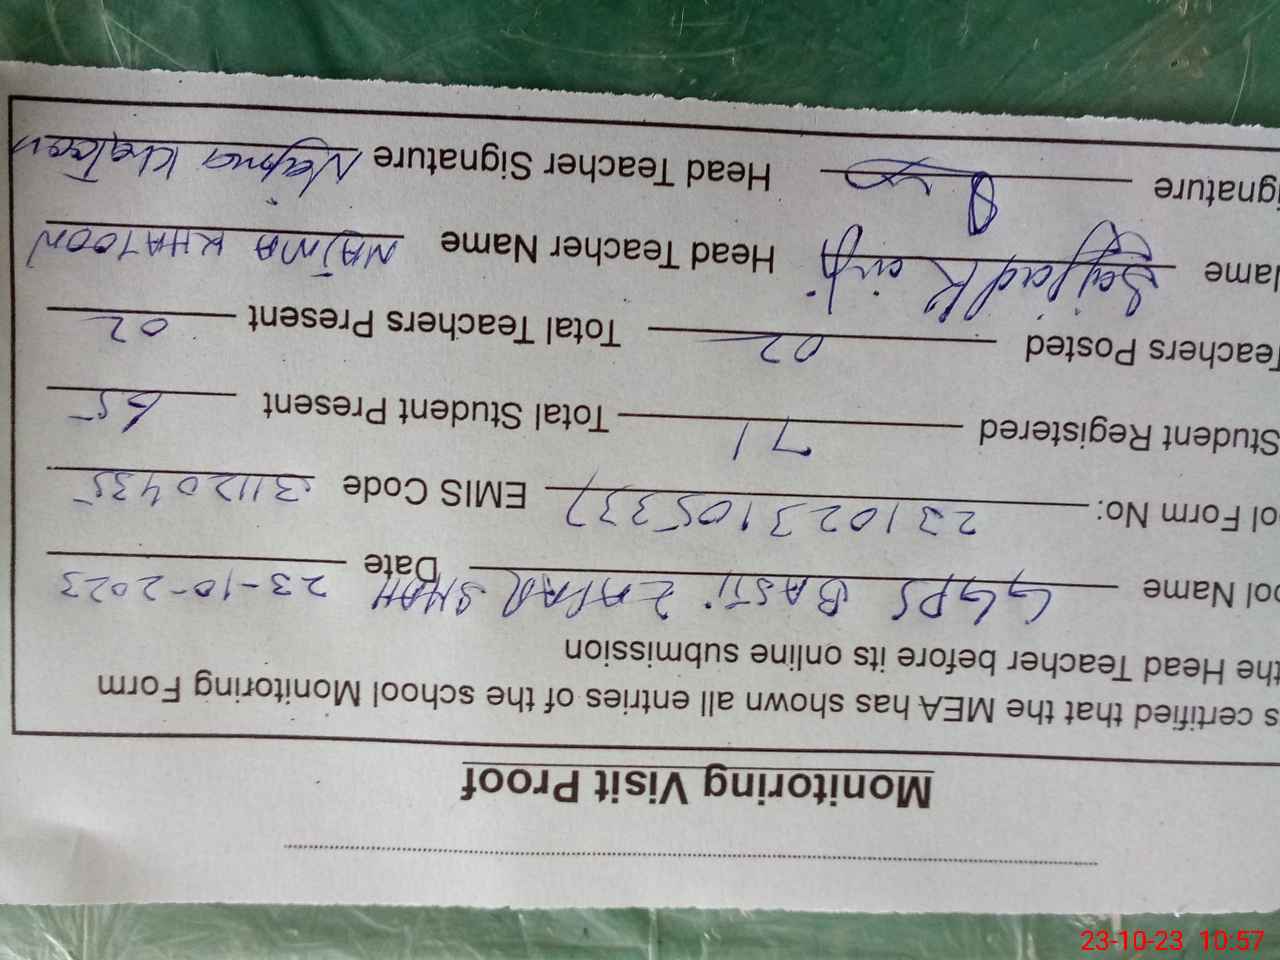 Monitoring Visit Proof
s certified that the MEA has shown all entries of the school Monitoring Form
the Head Teacher before its online submission
ol Name GGPS BASTI ZAFAR SHAH Date 23-10-2023
ol Form No: 231023105337 EMIS Code 31120435
Student Registered 71 Total Student Present 65
Teachers Posted 02 Total Teachers Present 02
Name Head Teacher Name NAJMA KHATOON
ignature Head Teacher Signature Najma Khatoon
23-10-23 10:57